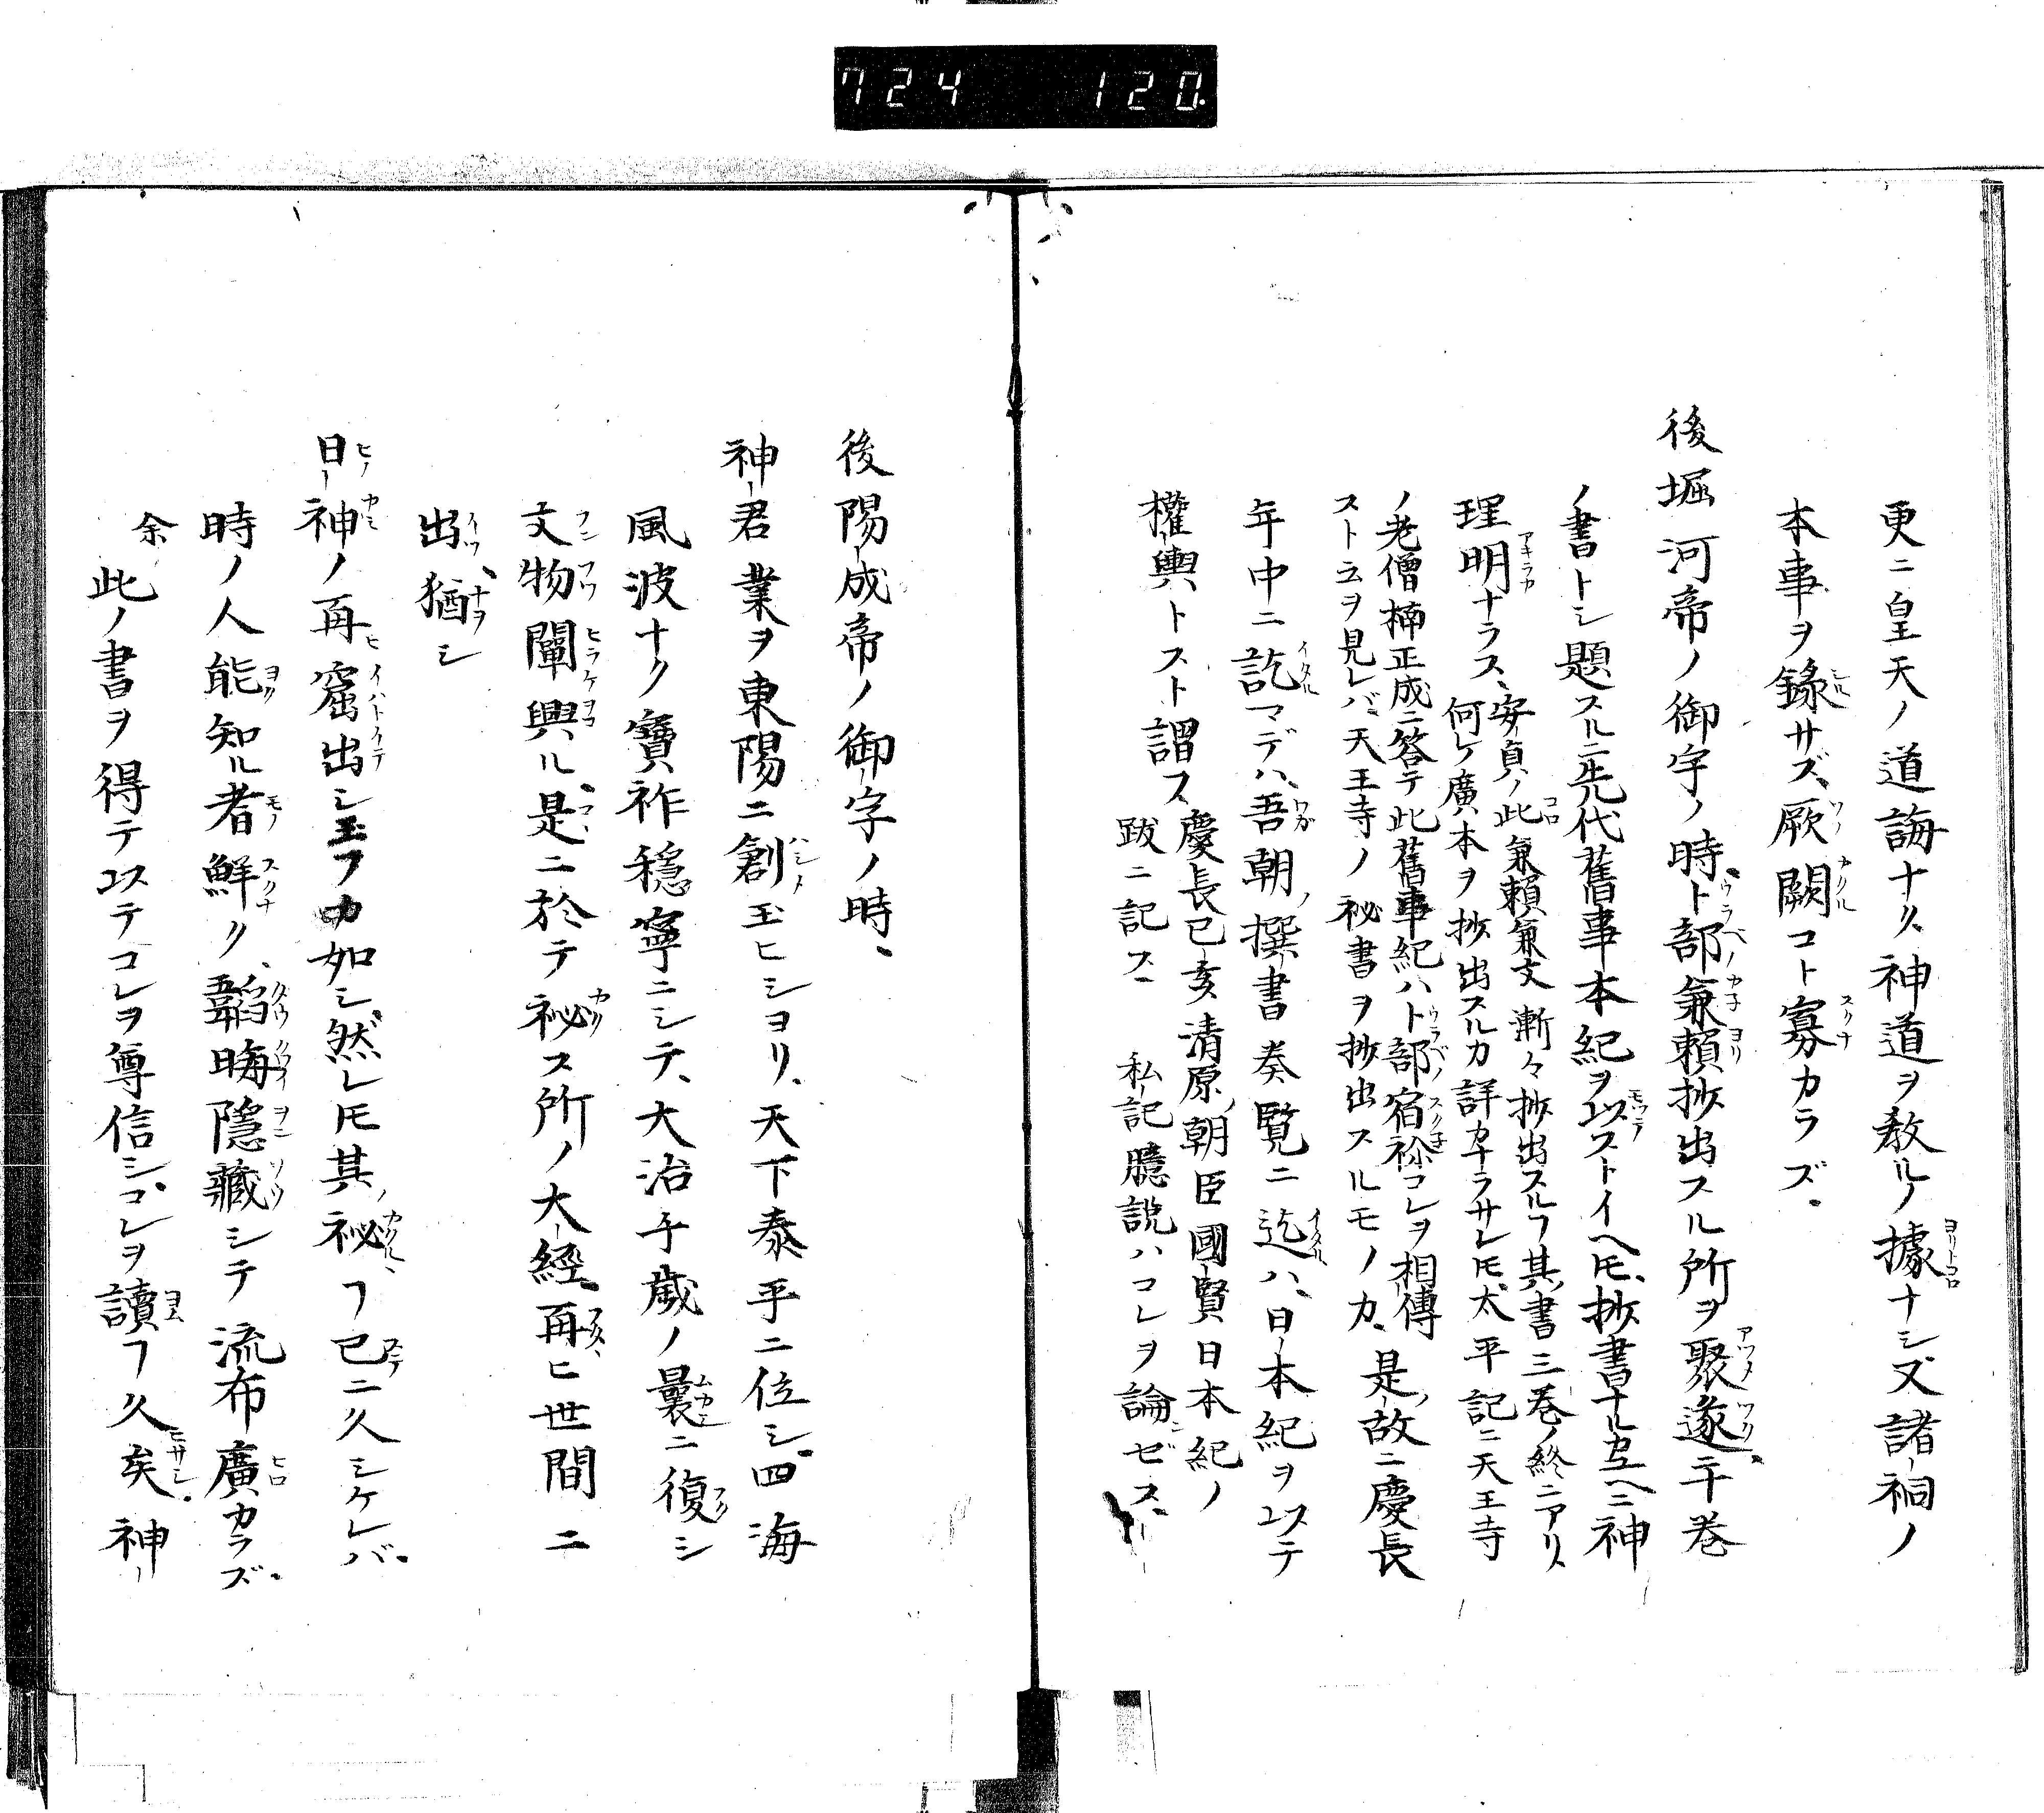 724 120.
更ニ皇天ノ道誨ナク、神道ヲ敎ルノ據ナシ又諸祠ノ
本事ヲ錄サズ、厥闕コト寡カラズ。
後堀河帝ノ御宇ノ時、卜部兼賴抄出スル所ヲ聚遂、十巻
ノ書トシ題スルニ先代舊事本紀ヲ以ストイヘ𪜈、抄書ナルカユヘニ神
理明ナラス、安貞ノ此兼賴兼文漸々抄出スルヿ其書三巻ノ終ニアリ、
何ケ廣本ヲ抄出スルカ詳カナラサレ𪜈、太平記ニ天王寺
ノ老僧楠正成ニ答テ此舊事紀ハ卜部宿祢コレヲ相傳
スト云ヲ見レバ、天王寺ノ秘書ヲ抄出スルモノカ、是故ニ慶長
年中ニ訖マデハ、吾朝ノ撰書奏覽ニ迄ハ、日本紀ヲ以テ
權輿トスト謂ス、慶長己亥清原朝臣國賢日本紀ノ
跋ニ記ス 私記臆說ハコレヲ論ゼス、
後陽成帝ノ御宇ノ時、
神君業ヲ東陽ニ創玉ヒシヨリ、天下泰平ニ位シ、四海
風波ナク寶祚穩寧ニシテ、大治千歲ノ曩ニ復シ
文物闡興ル、是ニ於テ祕ス所ノ大經、再ヒ世間ニ
出、猶シ
日神ノ再窟出シ玉フカ如シ、然レ𪜈其祕ヿ已ニ久シケレバ、
時ノ人能知ル者鮮ク、韜晦隱藏シテ流布廣カラズ、
余此ノ書ヲ得テ以テコレヲ尊信シ、コレヲ讀ヿ久矣、神